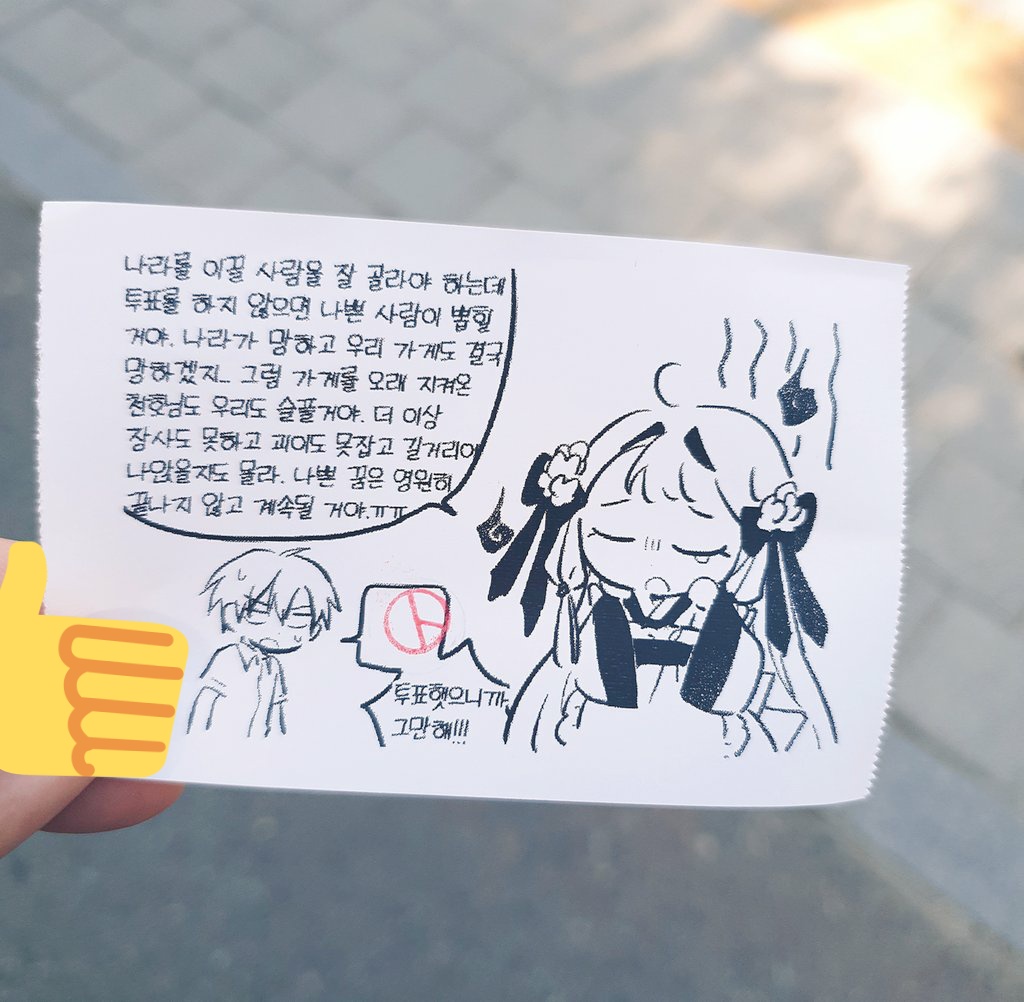 나라를 이끌 사람을 잘 골라야 하는데
투표를 하지 않으면 나쁜 사람이 뽑힐
거야. 나라가 망하고 우리 가게도 결국
망하겠지.. 그럼 가게를 오래 지켜온
천호님도 우리도 슬플거야. 더 이상
장사도 못하고 괴이도 못잡고 길거리에
나앉을지도 몰라. 나쁜 꿈은 영원히
끝나지 않고 계속될 거야.ㅠㅠ
투표햇으니까
그만해!!!